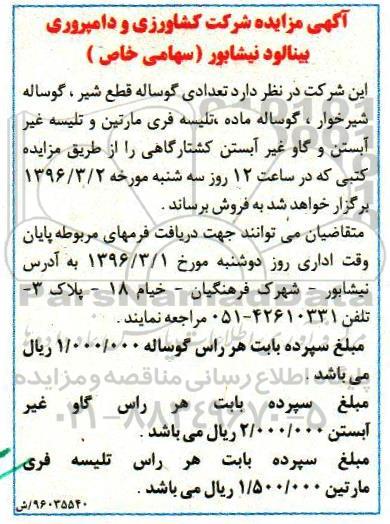 آگهی مزایده شرکت کشاورزی و دامپروری
بینالود نیشابور ( سهامی خاص )
این شرکت در نظر دارد تعدادی گوساله قطع شیر ، گوساله
شیرخوار ، گوساله ماده ،تلیسه فری مارتین و تلیسه غیر
آبستن و گاو غیر آبستن کشتارگاهی را از طریق مزایده
کتبی که در ساعت ۱۲ روز سه شنبه مورخه ۱۳۹۶/۳/۲
برگزار خواهد شد به فروش برساند .
متقاضیان می توانند جهت دریافت فرمهای مربوطه پایان
وقت اداری روز دوشنبه مورخ ۱۳۹۶/۳/۱ به آدرس
نیشابور - شهرک فرهنگیان - خیام ۱۸ - پلاک ۳-
تلفن ۴۲۶۱۰۳۳۱-۰۵۱ مراجعه نمایند .
مبلغ سپرده بابت هر راس گوساله ۱/۰۰۰/۰۰۰ ریال
می باشد .
مبلغ سپرده بابت هر راس گاو غیر
آبستن ۲/۰۰۰/۰۰۰ ریال می باشد .
مبلغ سپرده بابت هر راس تلیسه فری
مارتین ۱/۵۰۰/۰۰۰ ریال می باشد .
۹۶۰۳۵۵۴۰/ش
پایگاه اطلاع رسانی مناقصه و مزایده
۰۲۱-۸۸۳۴۹۶۷۰-۵